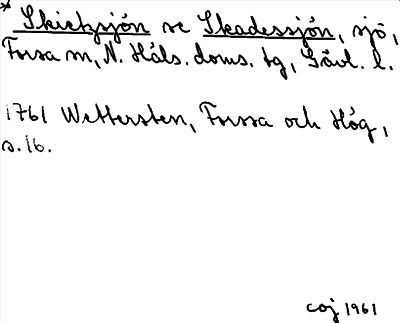 * Skietzsjön se Skadessjön, sjö,
Forsa sn, N. Häls. doms. tg, Gävl. l.
1761 Wettersten, Forssa och Hög,
s. 16.
coj 1961